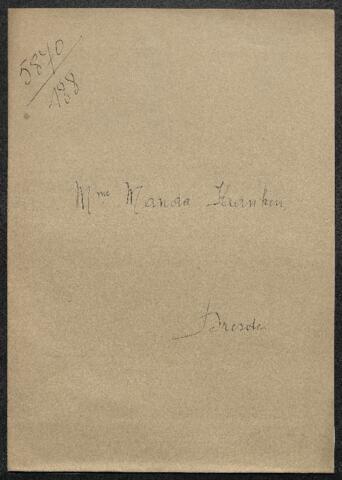 5870
188
Mme Manda
Dresde